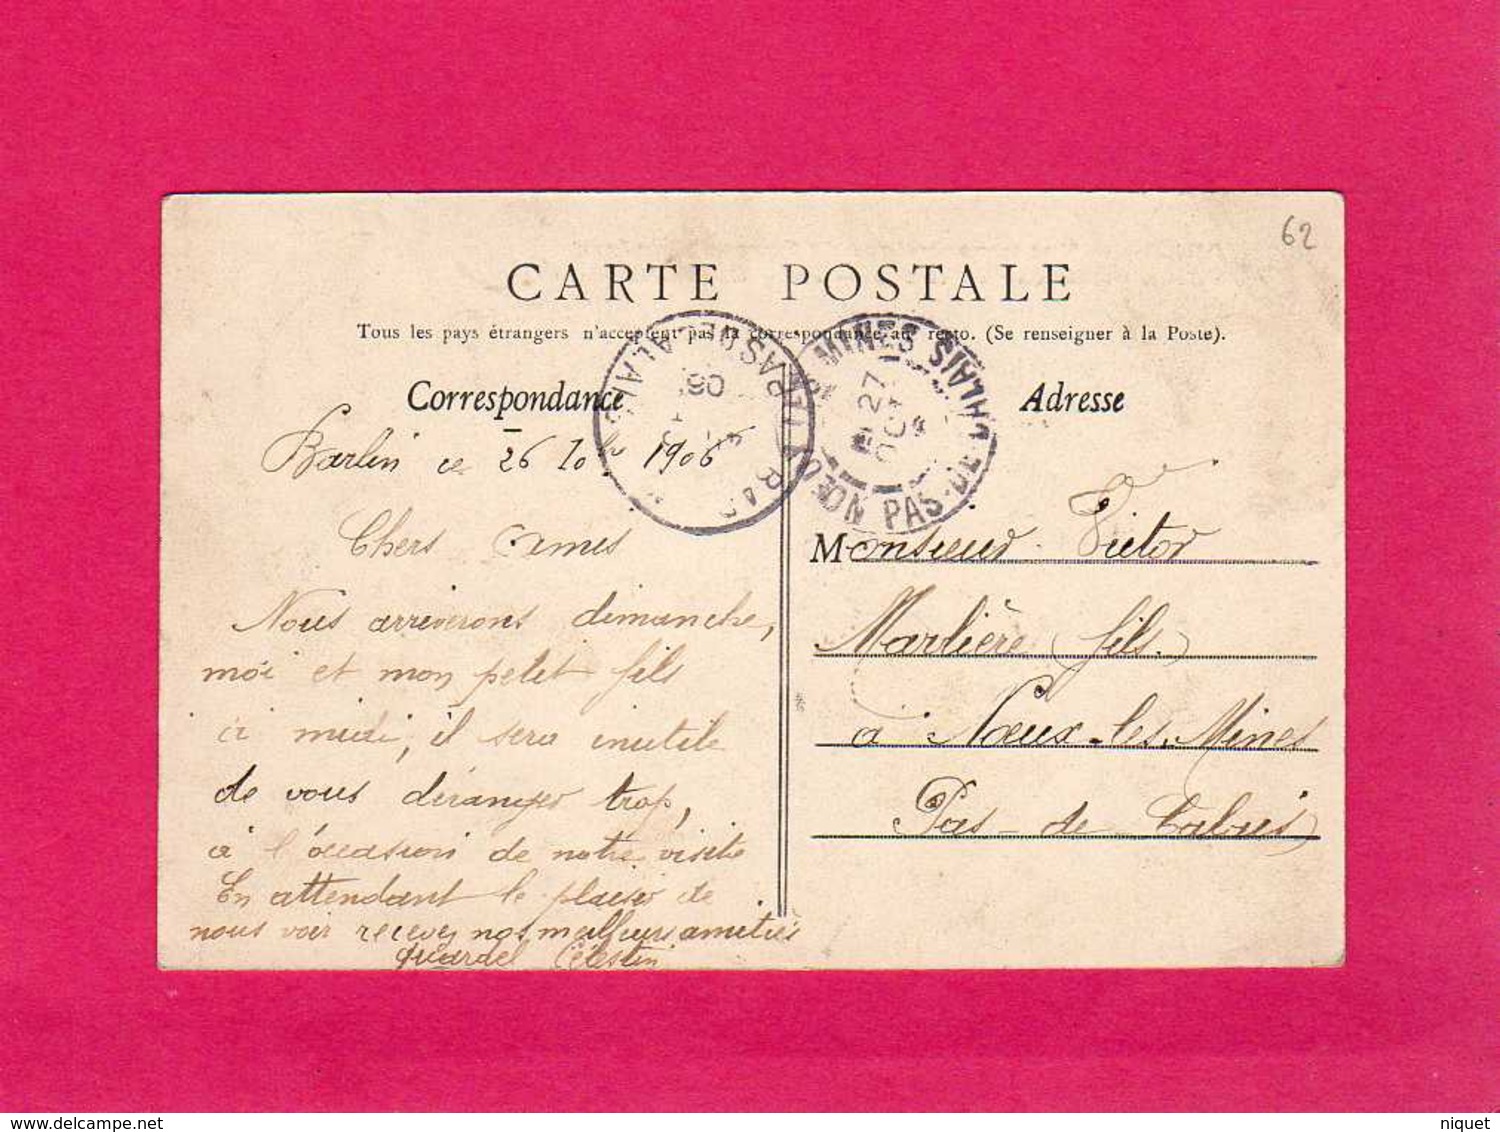 62
CARTE POSTALE
Tous les pays étrangers n'acceptent pas la correspondance au recto. (Se renseigner à la Poste).
Correspondance
Adresse
Barlin ce 26 10bre 1906
Chers Amis
Nous arriverons dimanche,
moi et mon petit fils
à midi, il sera inutile
de vous déranger trop,
à l'occasion de notre visite
En attendant le plaisir de
nous voir recevez nos meilleurs amitiés
Célestin
Monsieur Victor
Marlière fils.
à Nœux-les-Mines
Pas-de-Calais
NŒUX LES MINES PAS-DE-CALAIS
27
OCT
PAS DE CALAIS
niquet
www.delcampe.net